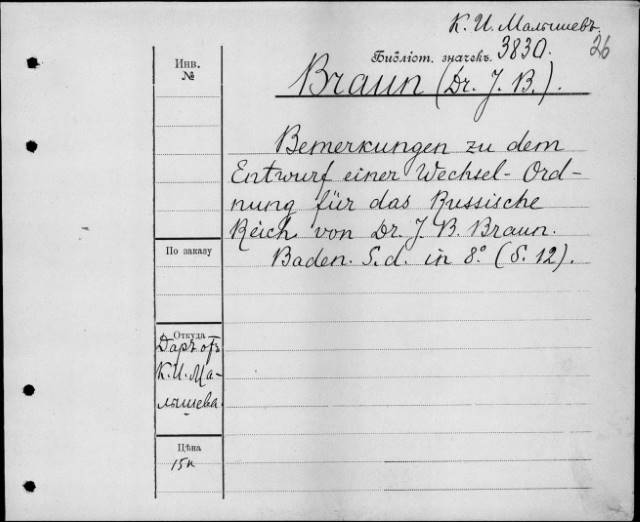 К. И. Малышевъ.
26
Библіот. значекъ. 3830.
Инв.
№
Braun (Dr. J. B.).
Bemerkungen zu dem
Entwurf einer Wechsel-Ord-
nung für das Russische
Reich von Dr. J. B. Braun.
Baden. S.d. in 8.° (S. 12).
По заказу
Откуда
Даръ отъ
К. И. Ма-
лышева.
Цѣна
15к